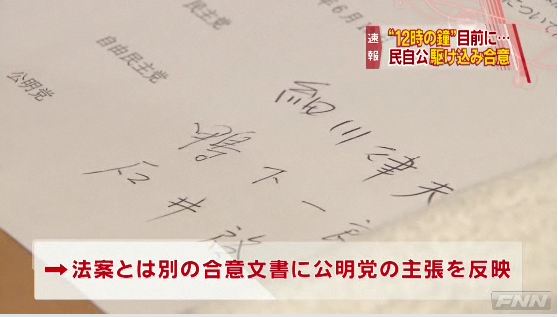 速報
“12時の鐘”目前に…
民自公駆け込み合意
について
年6月1
民主党
自由民主党
公明党
細川律夫
鴨下一郎
石井啓
→法案とは別の合意文書に公明党の主張を反映
FNN